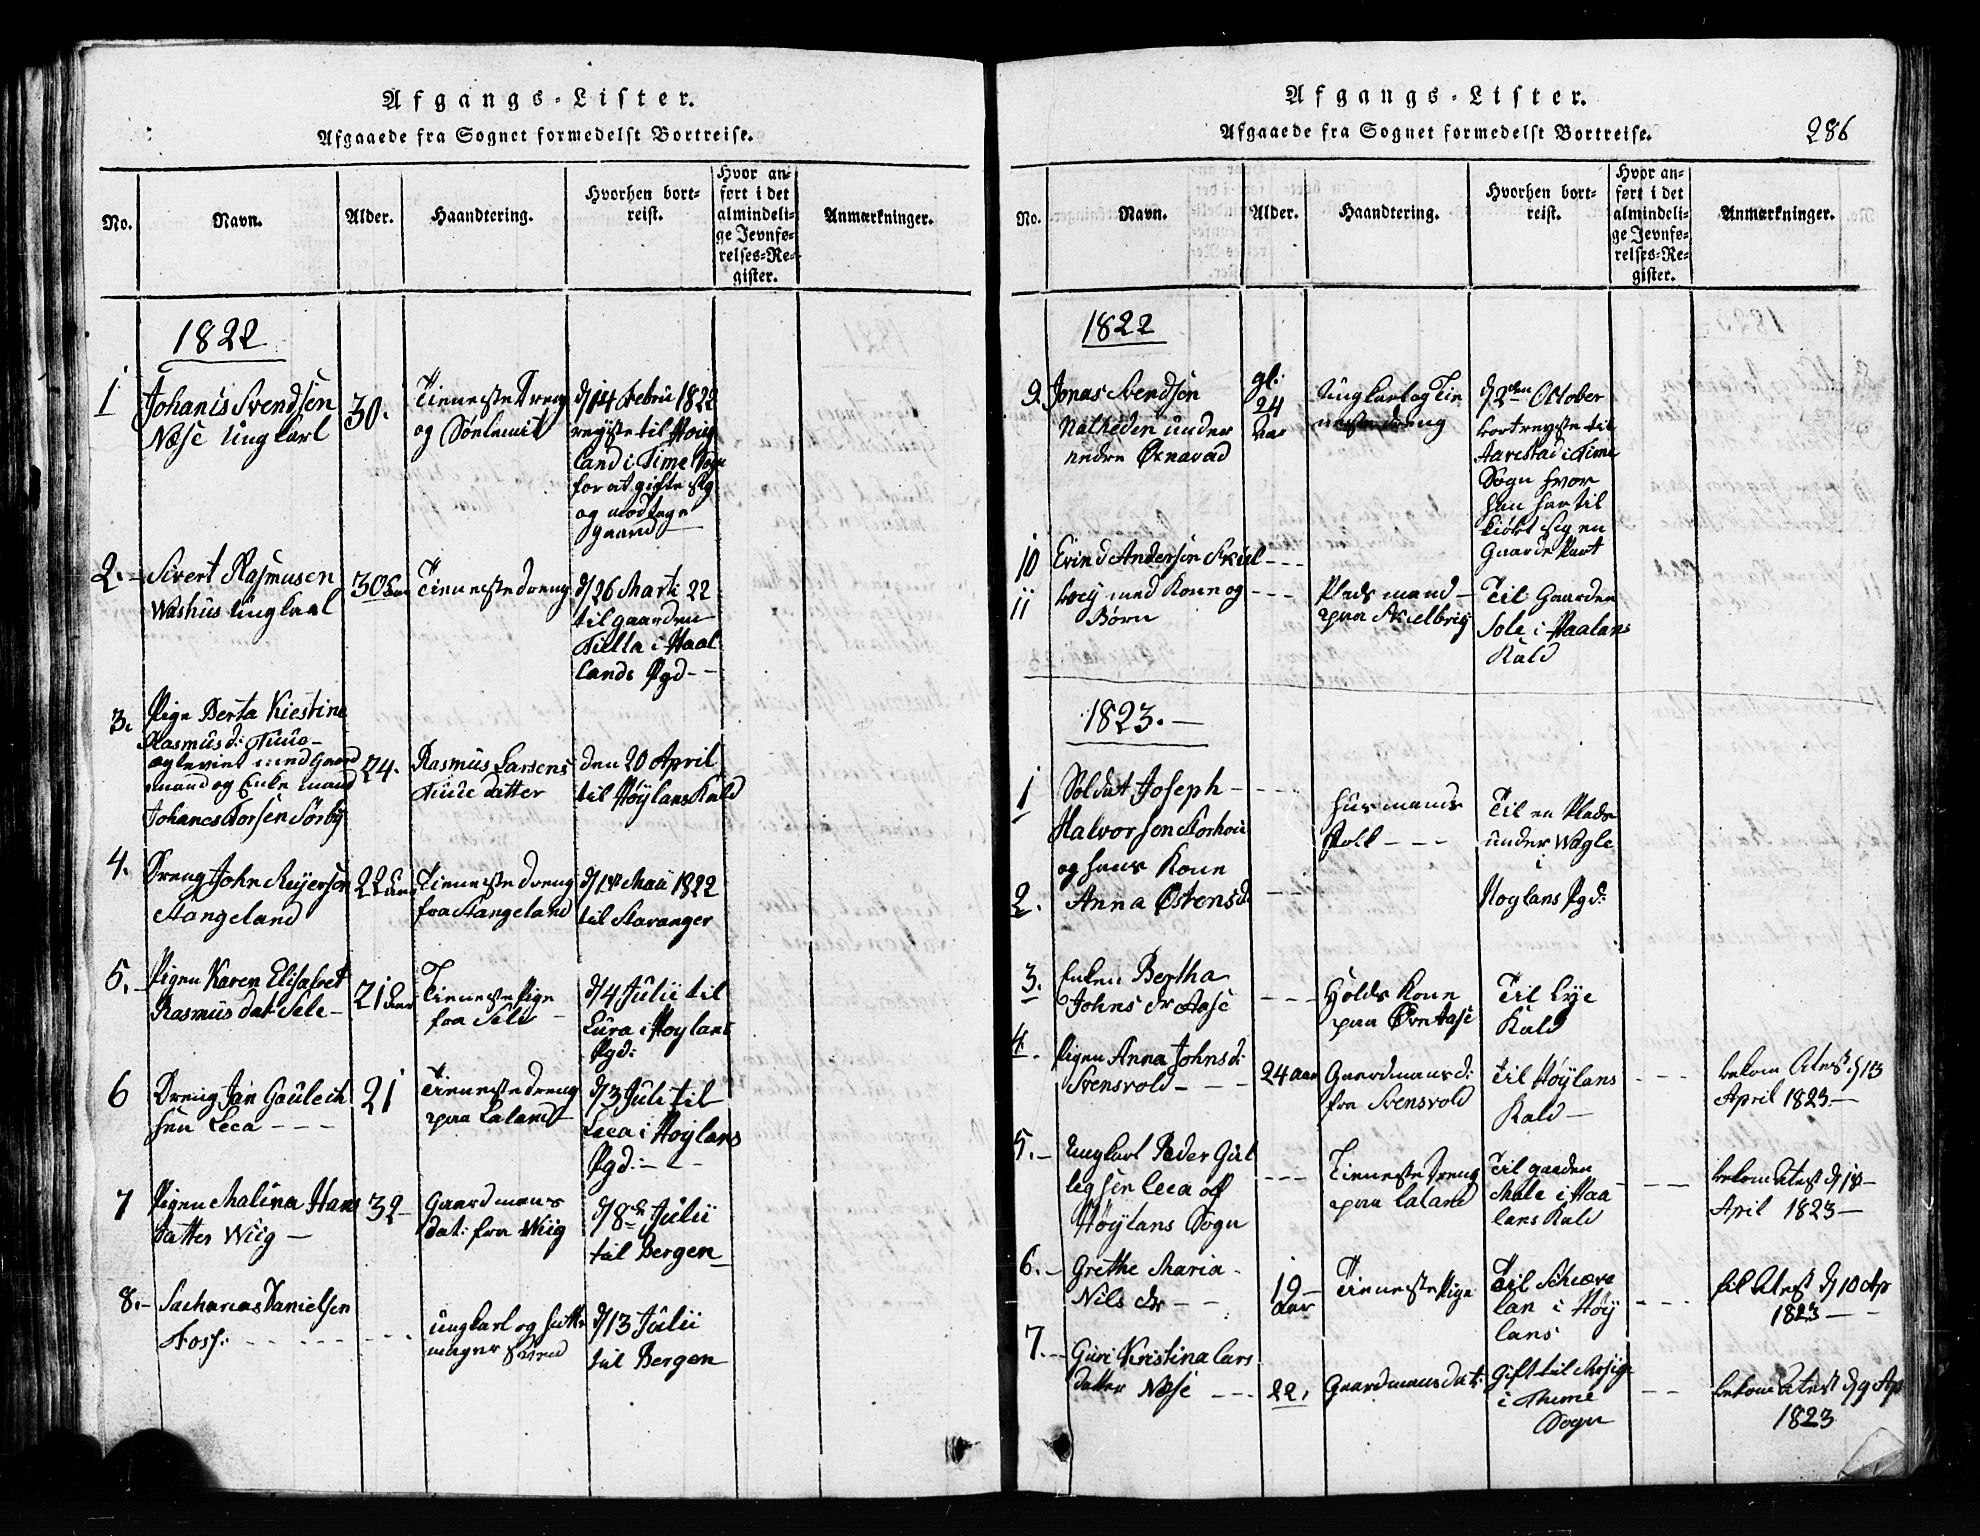 Afgangs-Lister.
Afgaaede fra Sognet formedelst Bortreise.
No.
Navn.
Alder.
Haandtering.
Hvorhen bort-
reist.
Hvor an-
ført i det
almindeli-
ge Jevnfø-
relses-Re-
gister.
Anmærkninger.
1822
1
Johanis Svendsen
Næse Ungkarl
30.
Tienneste Dreng
og
d/14 Febru 1822
reyste til
land i Time Sogn
for at gifte sig
og modtage
gaard
2.
Sivert Rasmusen
Washus Ungkaal
30 aar
Tiennestedreng
d/26 Marti 22
til gaarden
i Haal
lands Pgd
3.
Pige Berta Kiestine
Rasmusd:
med Gaard
mand og Enke mand
Johanes
24.
Rasmus Larsens
datter
den 20 April
til Høylans Kald
4.
Dreng John Reyerson
Stangeland
22 aar
Tienneste dreng
fra Stangeland
Maii 1822
til Stavanger
5.
Pigen Karen Elisabet
Rasmusdat Sele
21 aar
Tienneste Pige
fra Sele
d/4 Julii til
Lura i Hoylans
Pgd:
6
Dreng Jan Gaulech
sen Leea
21
Tiennestedreng
paa Laland
d/3 Juli til
Leea i Hoylans
Pgd:
7
Pigen Malina Hans
datter Wiig
32
Gaardmans
dat: fra Wiig
d/8de Julii
til Bergen
8.
Sacharias Danielsen
Foss:
ungkarl og hatte
mager Svend
d/13 Julii
til Bergen
Afgangs-Lister.
286
Afgaaede fra Sognet formedelst Bortreise.
No.
Navn.
Alder.
Haandtering.
Hvorhen bort-
reist.
Hvor an-
ført i det
almindeli-
ge Jevnfø-
relses-Re-
gister.
Anmærkninger.
1822
9.
Jonas Svendsøn
Nalheden under
nedre Øxnavad
gl:
24
aar
Ungkarl og Tie
neste dreng
d/2den October
bortreyste til
Aarestad i Time
Sogn hvor
han har til
kiøbt sig en
Gaardepart
10
Evind Andersen Skiel
11
brey med Kone og
Børn
Plads mand
paa Skielbrey
Til Gaarden
Sole i Haalans
Kald
1823.
1
Soldat Joseph
Halvorsen Storhoui
og hans Kone
2.
Anna Østensd.
Husmands
Folk
Til en Plads
under Wagle
i
Hoylans Pgd:
3.
Enken Bertha
Johns dr Aase
Holds Kone
paa Øvre Aase
Til Lye
Kald
4.
Pigen Anna Johnsd:
Svensvold
24 aar
Gaardmansd:
fra Svensvold
til Høylans
Kald
bekom Atest d/13
April 1823
5.
Ungkarl Peder Gut
legsen Leea af
Høylans Sogn
Tienneste Dreng
paa Laland
Til gaarden
Male i Haa
lans Kald
bekom Atest d/18
April 1823
6.
Grethe Maria
Nils dr
19
aar
Tienneste Pige
Til Schiæve
lan i Høy
lans
fik Atest d/10 Ap
1823
7.
Guri Kristina Lars
datter Næse
22.
Gaardmans dat:
Gift til
i Thime
Sogn
bekom Atest d/9 Ap
1823